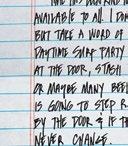 AVAILABLE TO ALL. I DON
BUT TAKE A WORD OF
DAYTIME SURF PARTY
AT THE DOOR, STASH
OR MAYBE MANY BEE
IS GOING TO STEP
BY THE DOOR & IF
NEVER CHANGE.